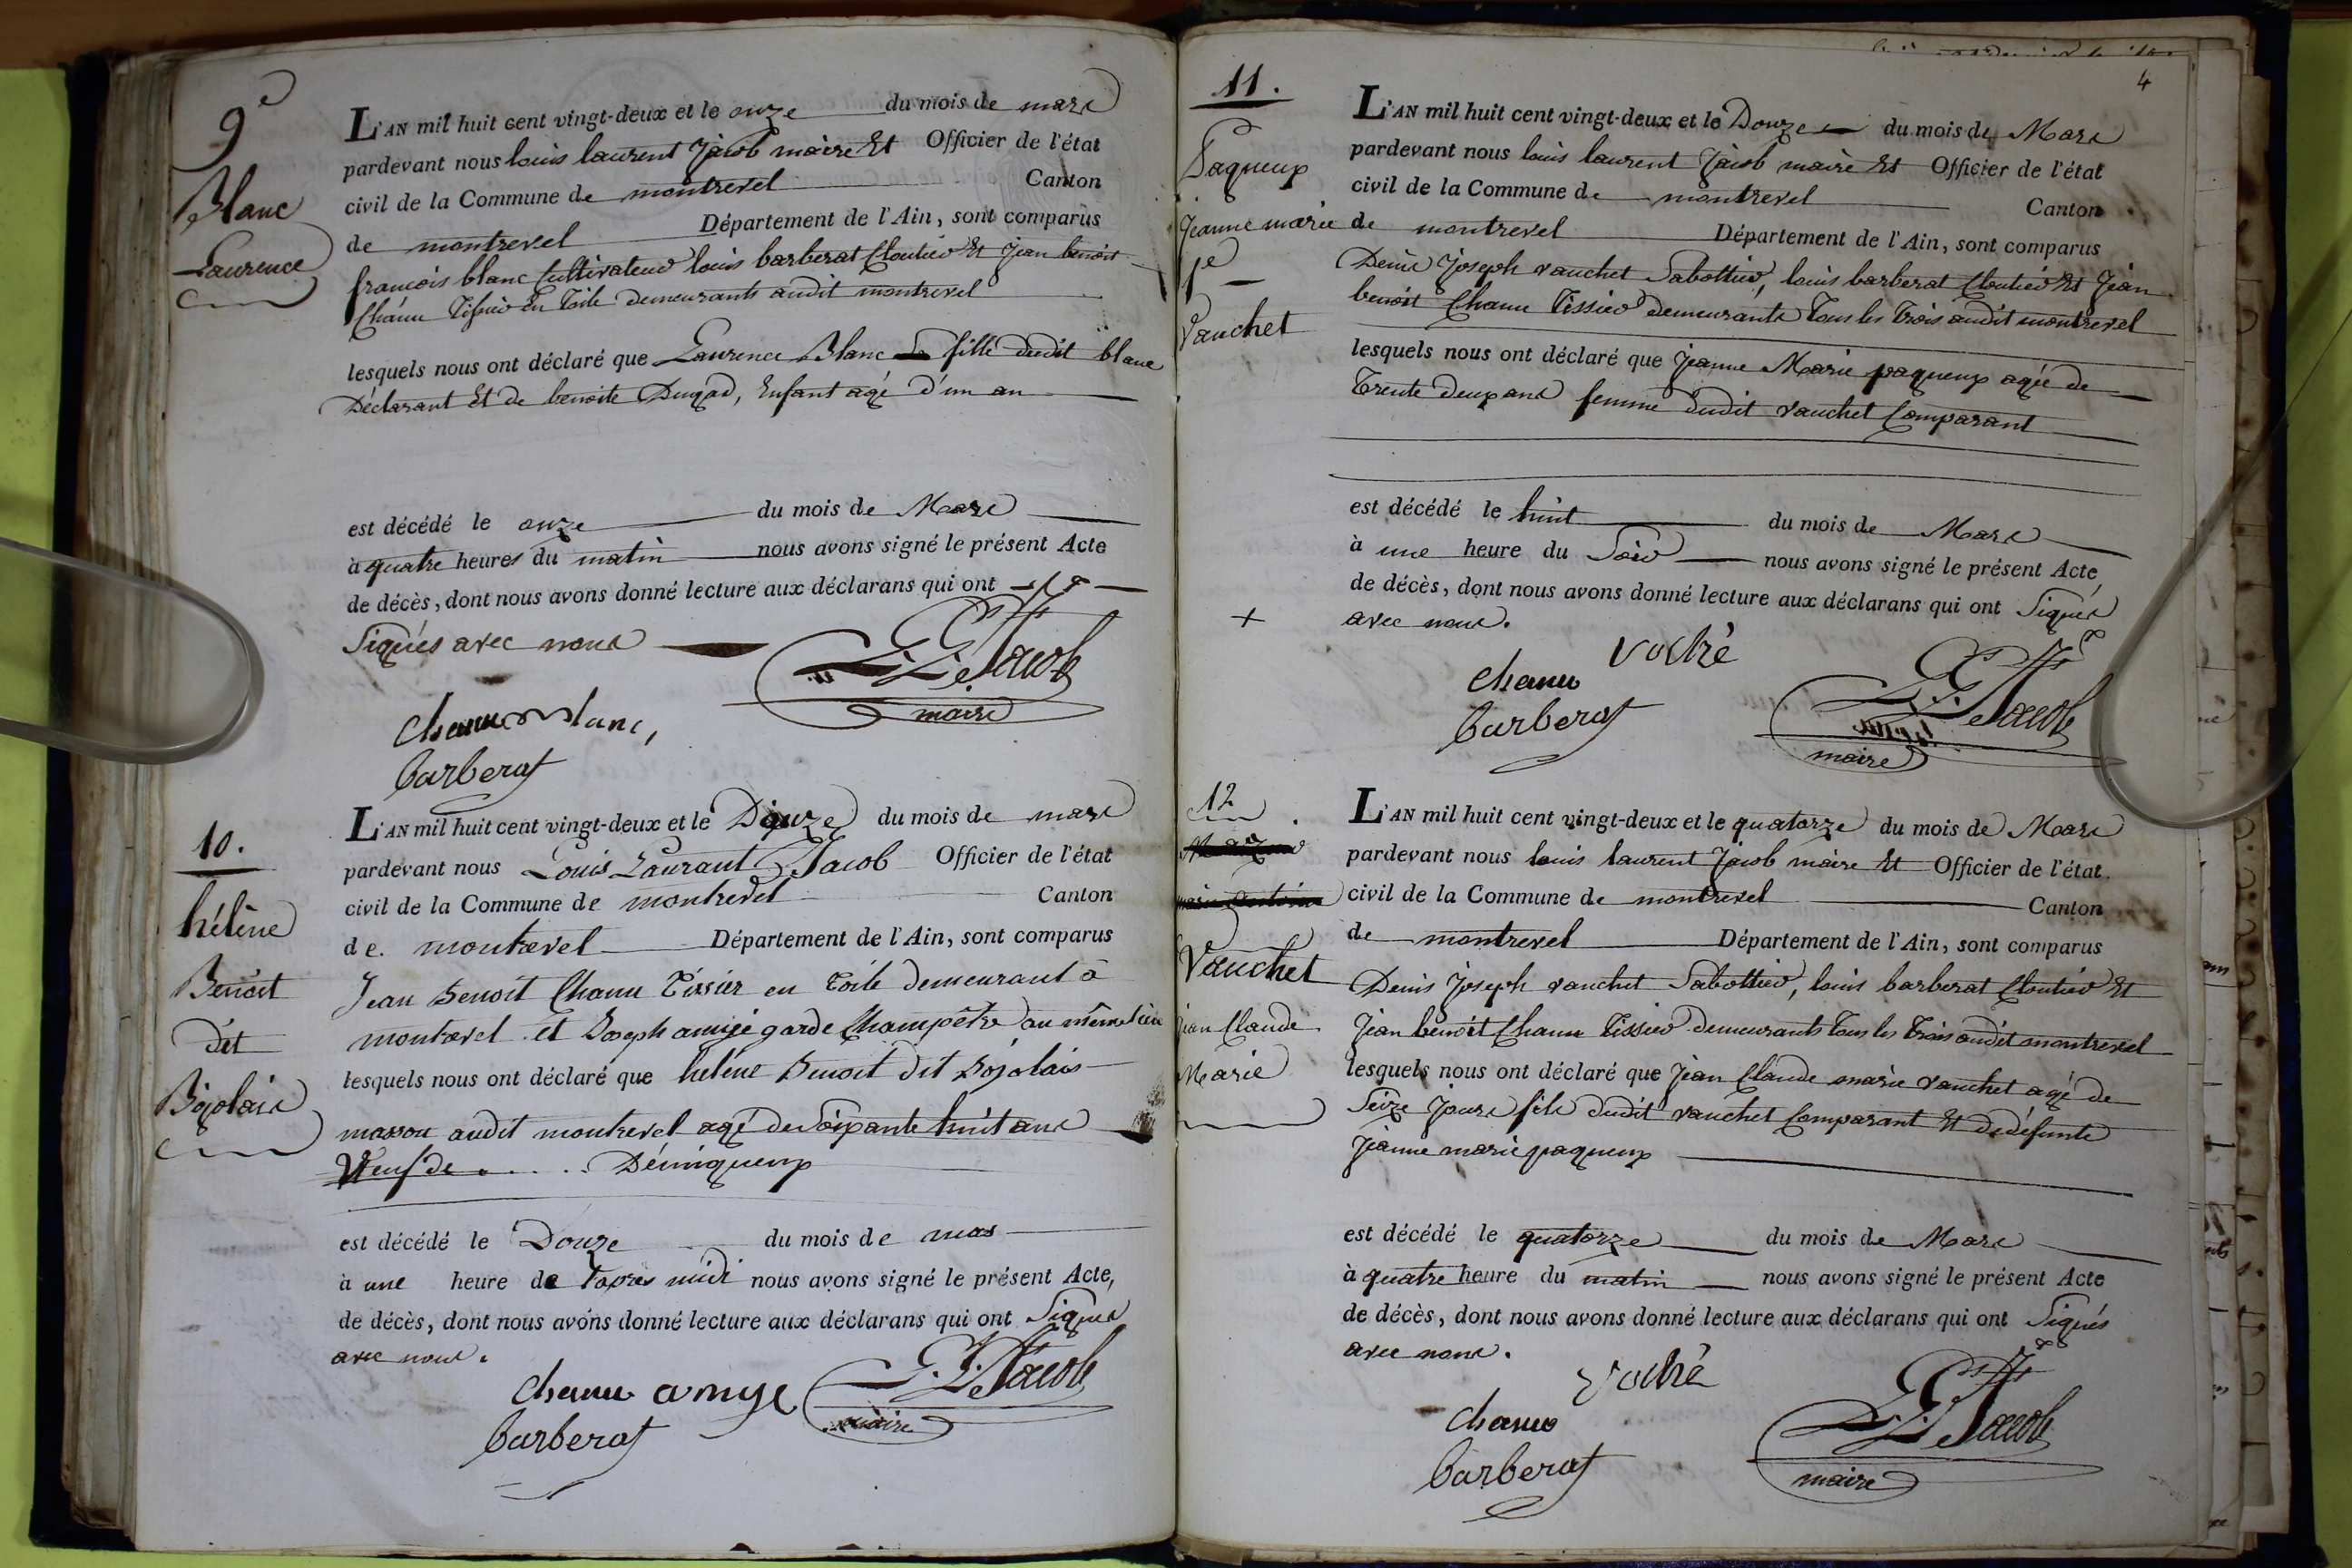 9e
Blanc
Laurence
L'AN mil huit cent vingt-deux et le onze du mois de mars
pardevant nous louis laurent Jacob maire Et Officier de l'état
civil de la Commune de montrevel Canton
de montrevel Département de l'Ain, sont comparus
francois blanc Cultivateur louis barberat Cloutier Et Jean benoit
Chanu Tissier En Toile demeurants audit montrevel
lesquels nous ont déclaré que Laurence Blanc fille dudit blanc
Déclarant Et de benoite Dugad, Enfant agé d'un an
est décédé le onze du mois de Mars
à quatre heures du matin nous avons signé le présent Acte
de décès, dont nous avons donné lecture aux déclarans qui ont
Signés avec nous
L. L. Jacob
maire
Chanu Blanc,
barberat
10.
hélène
Benoit
dit
Bojolais
L'AN mil huit cent vingt-deux et le Douze du mois de mars
pardevant nous Louis Laurant Jacob Officier de l'état
civil de la Commune de montrevel Canton
de. montrevel Département de l'Ain, sont comparus
Jean Benoit Chanu Tissier en Toile demeurant à
montrevel et Joseph amige garde Champêtre au même lieu
lesquels nous ont déclaré que heléne Benoit dit Bojolais
masson audit montrevel agé de Soixante huit ans
Veuf de . . . . Déniqueux
est décédé le Douze du mois de mas
à une heure de l'apres midi nous avons signé le présent Acte,
de décès, dont nous avons donné lecture aux déclarans qui ont Signés
avec nous.
Chanu amige L. L. Jacob
barberat maire
4
11.
Paqueux
Jeanne marie
fe
Vauchet
L'AN mil huit cent vingt-deux et le Douze du mois de Mars
pardevant nous louis laurent Jacob maire Et Officier de l'état
civil de la Commune de montrevel Canton
de montrevel Département de l'Ain, sont comparus
Denis Joseph vauchet Sabottier, louis barberat Cloutier Et Jean
benoit Chanu Tissier demeurants Tous les Trois audit montrevel
lesquels nous ont déclaré que Jeanne Marie paqueux agée de
Trente deux ans femme dudit vauchet Comparant
est décédé le huit du mois de Mars
à une heure du Soir nous avons signé le présent Acte
de décès, dont nous avons donné lecture aux déclarans qui ont Signés
+ avec nous.
vochè
Chanu
barberat
L. L. Jacob
maire
12
Vauchet
Jean Claude
Marie
L'AN mil huit cent vingt-deux et le quatorze du mois de Mars
pardevant nous louis laurent Jacob maire Et Officier de l'état
civil de la Commune de montrevel Canton
de montrevel Département de l'Ain, sont comparus
Denis Joseph vauchet Sabottier, louis barberat Cloutier Et
Jean benoit Chanu Tissier demeurants Tous les Trois audit montrevel
lesquels nous ont déclaré que Jean Claude marie vauchet agé de
Seize Jours fils dudit vauchet Comparant Et de défunte
Jeanne marie paqueux
est décédé le quatorze du mois de Mars
à quatre heure du matin nous avons signé le présent Acte
de décès, dont nous avons donné lecture aux déclarans qui ont Signés
avec nous.
vochè
Chanu
barberat
L. L. Jacob
maire